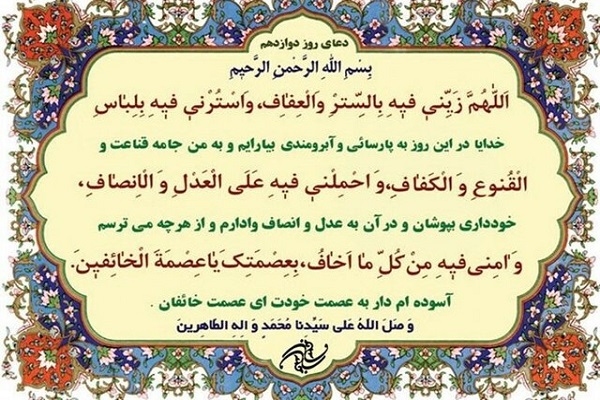 دعای روز دوازدهم
بِسْمِ اللهِ الرَّحْمنِ الرَّحیمِ
اَللّهُمَّ زَیِّنّی فیهِ بِالسِّترْ وَالْعِفافِ، وَاسْتُرْنی فیهِ بِلِباسِ
خدایا در این روز به پارسائی و آبرومندی بیارایم و به من جامه قناعت و
الْقُنوعِ وَ الْکَفافِ، وَ احْمِلْنی فیهِ عَلَی الْعَدْلِ وَ الْاِنصافِ،
خودداری بپوشان و در آن به عدل و انصاف وادارم و از هرچه می ترسم
وَ امِنی فیهِ مِنْ کُلِّ ما اَخافُ، بِعِصْمَتِکَ یاعِصْمَةَ الْخائِفینَ.
آسوده ام دار به عصمت خودت ای عصمت خائفان .
وَ صَلَ اللهُ عَلی سَیِّدِنا مُحَمَدٍ وَ الِهِ الطّاهِرینَ